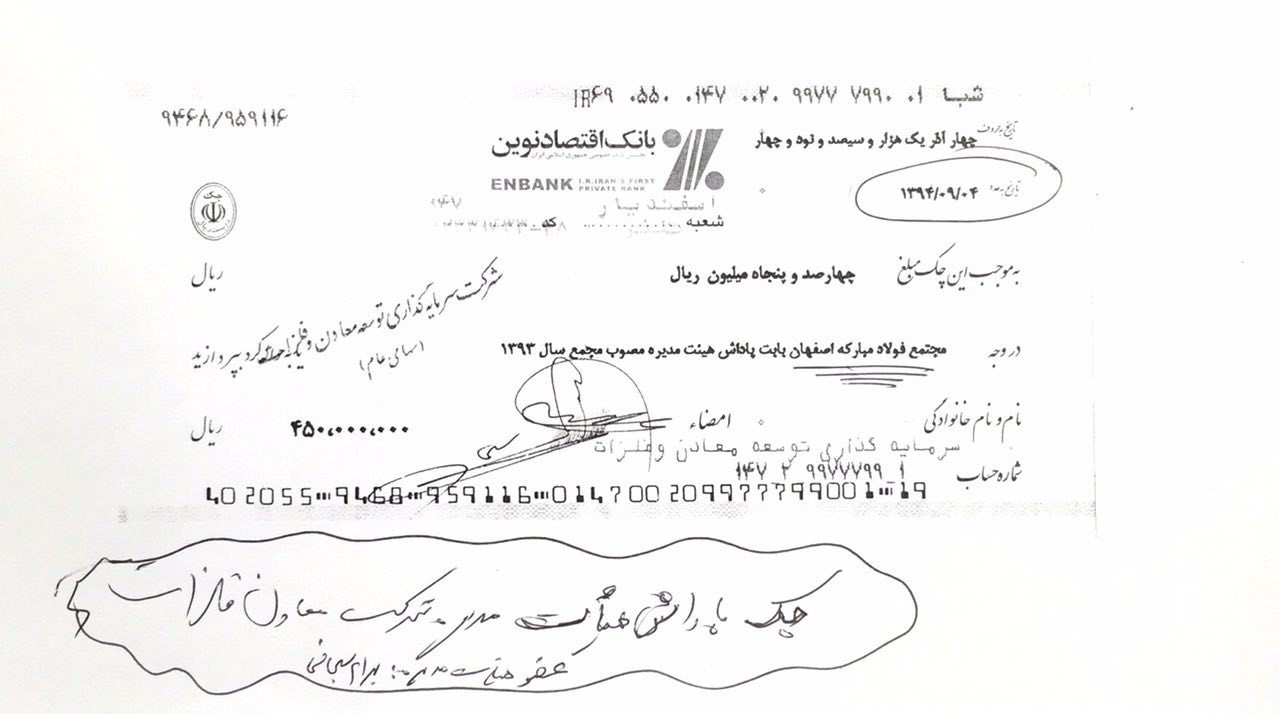 شبا IR۶۹ ۰۵۵۰ ۰۱۴۷ ۰۰۲۰ ۹۹۷۷ ۷۹۹۰ ۰۱
۹۴۶۸/۹۵۹۱۱۶
تاریخ به حروف چهار آذر یک هزار و سیصد و نوه و چهار
بانک اقتصاد نوین
نخستین بانک خصوصی جمهوری اسلامی ایران
ENBANK I.R.IRAN'S FIRST PRIVATE BANK
تاریخ به عدد ۱۳۹۴/۰۹/۰۴
چک
اسفندیار
شعبه کد
به موجب این چک مبلغ چهارصد و پنجاه میلیون ریال ریال
در وجه مجتمع فولاد مبارکه اصفهان بابت پاداش هیئت مدیره مصوب مجمع سال ۱۳۹۳ کرد بپردازید
شرکت سرمایه گذاری توسعه معادن و فلزات
(سهامی عام)
نام و نام خانوادگی امضاء ۴۵۰,۰۰۰,۰۰۰ ریال
سرمایه گذاری توسعه معادن وفلزات
شماره حساب ۱۴۷ ۲ ۹۹۷۷۷۹۹ ۱
402055⑈9468⑈959116⑈014700209977799001⑈19
چک پاداش هیأت مدیره شرکت معادن فلزات
عضو هیئت مدیره: بهرام سبحانی